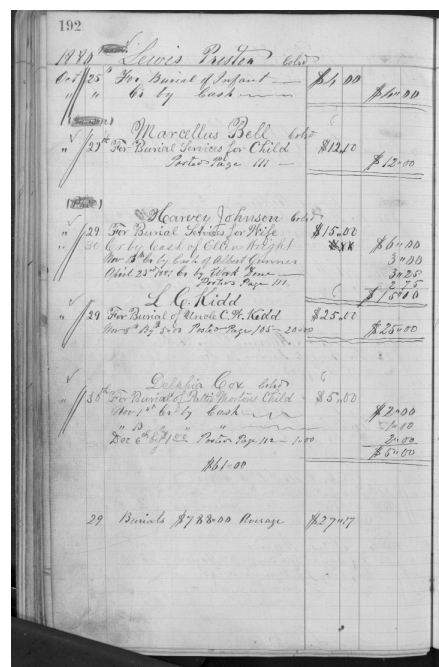 192
1880 Lewis Preston Colrd
Oct 25th For Burial of Infant $4.00
" " Cr by Cash $4.00
Marcellus Bell Colrd
" 29th For Burial Services for Child $12.00
Posted Page 111 $12.00
Harvey Johnson Colrd
" 29 For Burial Services for Wife $15.00
" 30 Cr by Cash of Ellen Wright $6.00
Nov 13th Cr by Cash of Albert 3.00
April 23rd Cr by Work Done 3.25
Posters Page 111 2.75
$15.00
L. C. Kidd
" 29 For Burial of Uncle C. W. Kidd $25.00
Nov 8th By 5.00 Posted Page 105 - 20.00 $25.00
Delphia Cox Colrd
" 30th For Burial of Mortons Child $5.00
Nov 1st Cr by Cash $2.00
" " 1.00
Dec 6th By 1.00 " Posters Page 112 - 1.00 2.00
$5.00
$61.00
29 Burials $788.00 Average $27.17